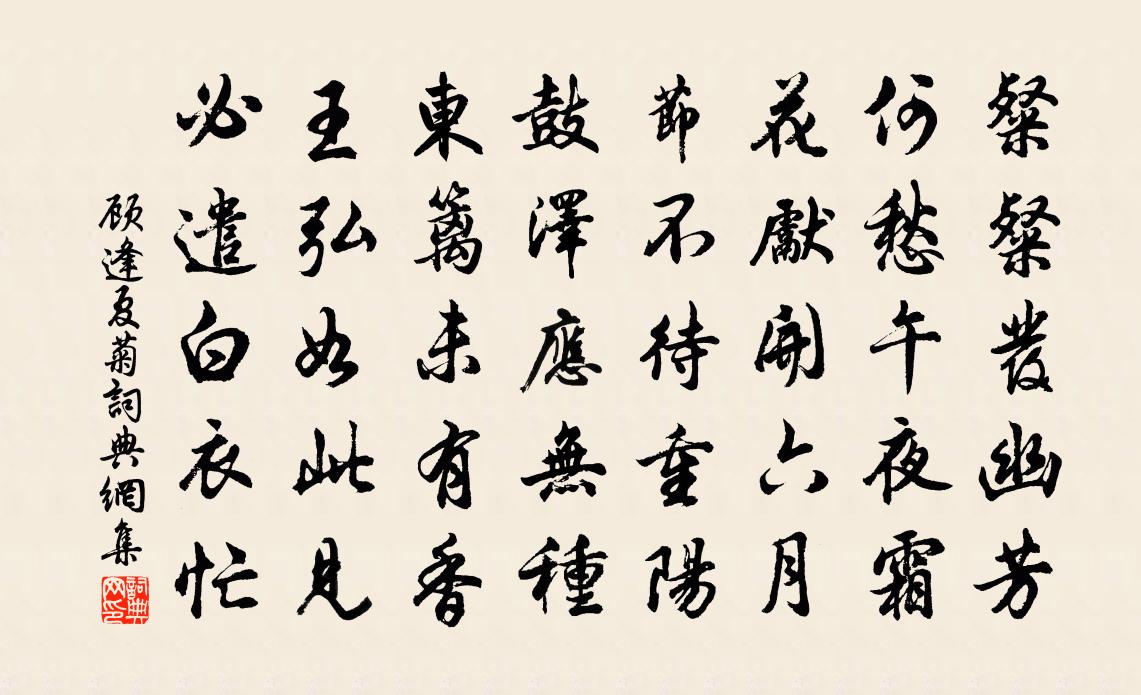 粲粲發幽芳
何愁午夜霜
花獻開六月
節不待重陽
鼓澤應無種
東篱未有香
王弘如此見
必遣白衣忙
顾逢夏菊詞典網集
詞典网印